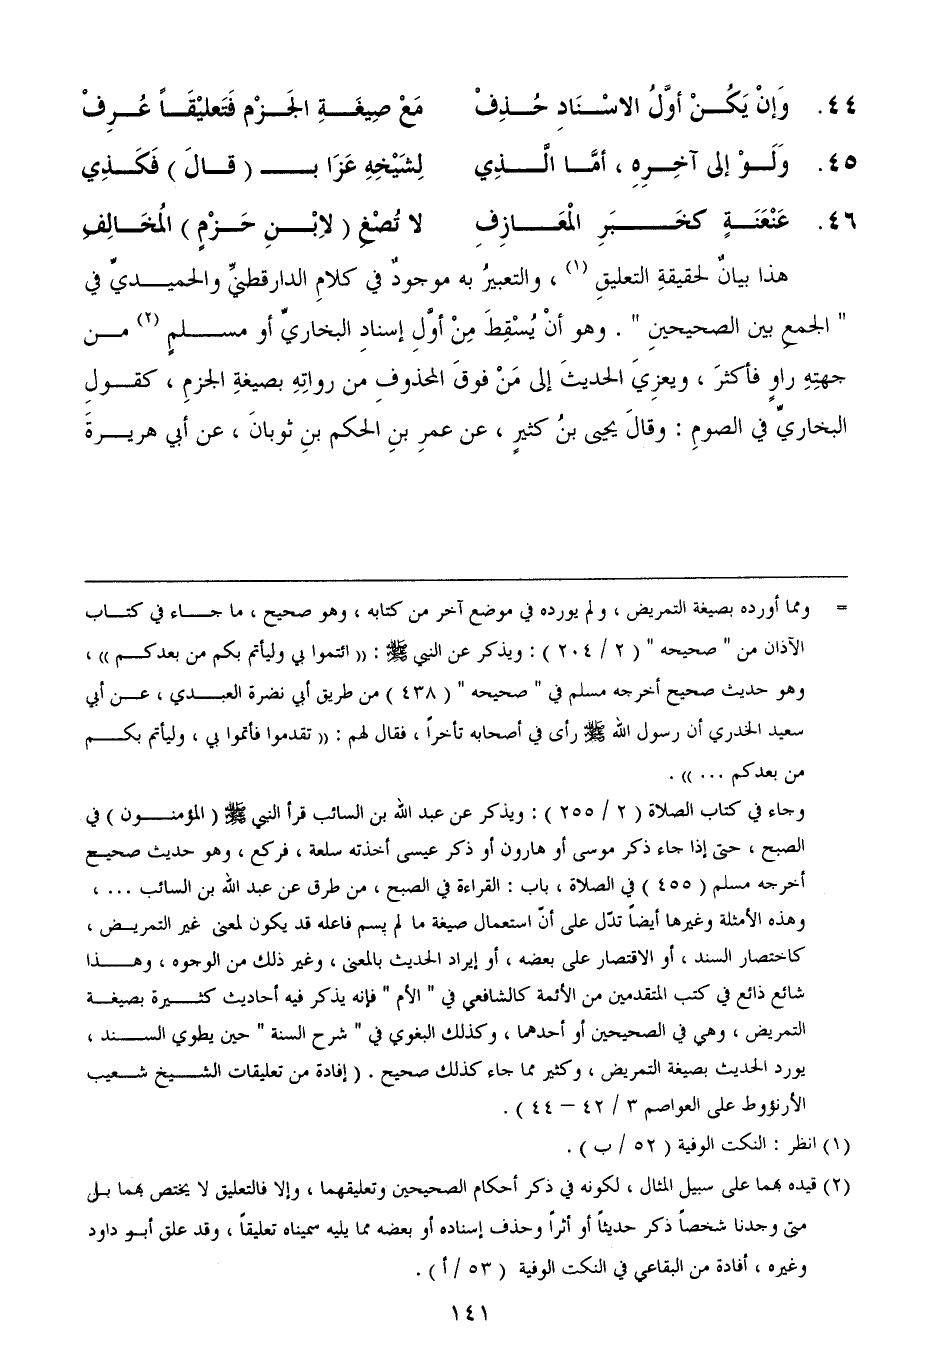 ٤٤. وَإنْ يَكُـنْ أوَّلُ الاسْـنَادِ حُـذِفْ مَعْ صِيغَـةِ الجَـزْمِ فَتَعليْقَـاً عُـرِفْ
٤٥. وَلَـوْ إلى آخِـرِهِ ، أمَّـا الَّـذِي لِشَيْخِهِ عَزَا بـ ( قـالَ ) فَكَـذِي
٤٦. عَنْعَنَـةٍ كخَبَـرِ الْمَعَـازِفِ لا تُصْغِ ( لاِبْـنِ حَـزْمٍ ) الْمُخَـالِفِ
هذا بيانٌ لحقيقةِ التعليقِ (١) ، والتعبيرُ به موجودٌ في كلامِ الدارقطنيِّ والحميـديِّ في
" الجمعِ بين الصحيحينِ " . وهو أنْ يُسْقِطَ مِنْ أوَّلِ إسنادِ البخاريِّ أو مسـلمٍ (٢) مـن
جهتِهِ راوٍ فأكثرَ ، ويعزيَ الحديثَ إلى مَنْ فوقَ المحذوفِ من رواتِهِ بصيغةِ الجزمِ ، كقـولِ
البخاريِّ في الصومِ : وقالَ يحيى بنُ كثيرٍ ، عن عمرِ بنِ الحكم بنِ ثوبانَ ، عن أبي هريـرةَ
= ومما أورده بصيغة التمريض ، ولم يورده في موضع آخر من كتابه ، وهو صحيح ، ما جـاء في كتـاب
الآذان من " صحيحه " ( ٢ / ٢٠٤ ) : ويذكر عن النبي ﷺ : (( ائتموا بي وليأتم بكم من بعدكـم )) ،
وهو حديث صحيح أخرجه مسلم في " صحيحه " ( ٤٣٨ ) من طريق أبي نضرة العبـدي ، عـن أبي
سعيد الخدري أن رسول الله ﷺ رأى في أصحابه تأخراً ، فقال لهم : (( تقدموا فأتموا بي ، وليأتم بكـم
من بعدكم ... )) .
وجاء في كتاب الصلاة ( ٢ / ٢٥٥ ) : ويذكر عن عبد الله بن السائب قرأ النبي ﷺ ( المؤمنـون ) في
الصبح ، حتى إذا جاء ذكر موسى أو هارون أو ذكر عيسى أخذته سلعة ، فركع ، وهو حديث صحيـح
أخرجه مسلم ( ٤٥٥ ) في الصلاة ، باب : القراءة في الصبح ، من طرق عن عبد الله بن السائب ... ،
وهذه الأمثلة وغيرها أيضاً تدّل على أنّ استعمال صيغة ما لم يسم فاعله قد يكون لمعنى غير التمريـض ،
كاختصار السند ، أو الاقتصار على بعضه ، أو إيراد الحديث بالمعنى ، وغير ذلك من الوجوه ، وهـذا
شائع ذائع في كتب المتقدمين من الأئمة كالشافعي في " الأم " فإنه يذكر فيه أحاديث كثـيرة بصيغـة
التمريض ، وهي في الصحيحين أو أحدهما ، وكذلك البغوي في " شرح السنة " حين يطوي السـند ،
يورد الحديث بصيغة التمريض ، وكثير مما جاء كذلك صحيح . ( إفادة من تعليقات الشـيخ شـعيب
الأرنؤوط على العواصم ٣ / ٤٢ – ٤٤ ) .
(١) انظر : النكت الوفية ( ٥٢ / ب ) .
(٢) قيده بهما على سبيل المثال ، لكونه في ذكر أحكام الصحيحين وتعليقهما ، وإلا فالتعليق لا يختص بهما بـل
متى وجدنا شخصاً ذكر حديثاً أو أثراً وحذف إسناده أو بعضه مما يليه سميناه تعليقاً ، وقد علق أبـو داود
وغيره ، أفادة من البقاعي في النكت الوفية ( ٥٣ / أ ) .
١٤١